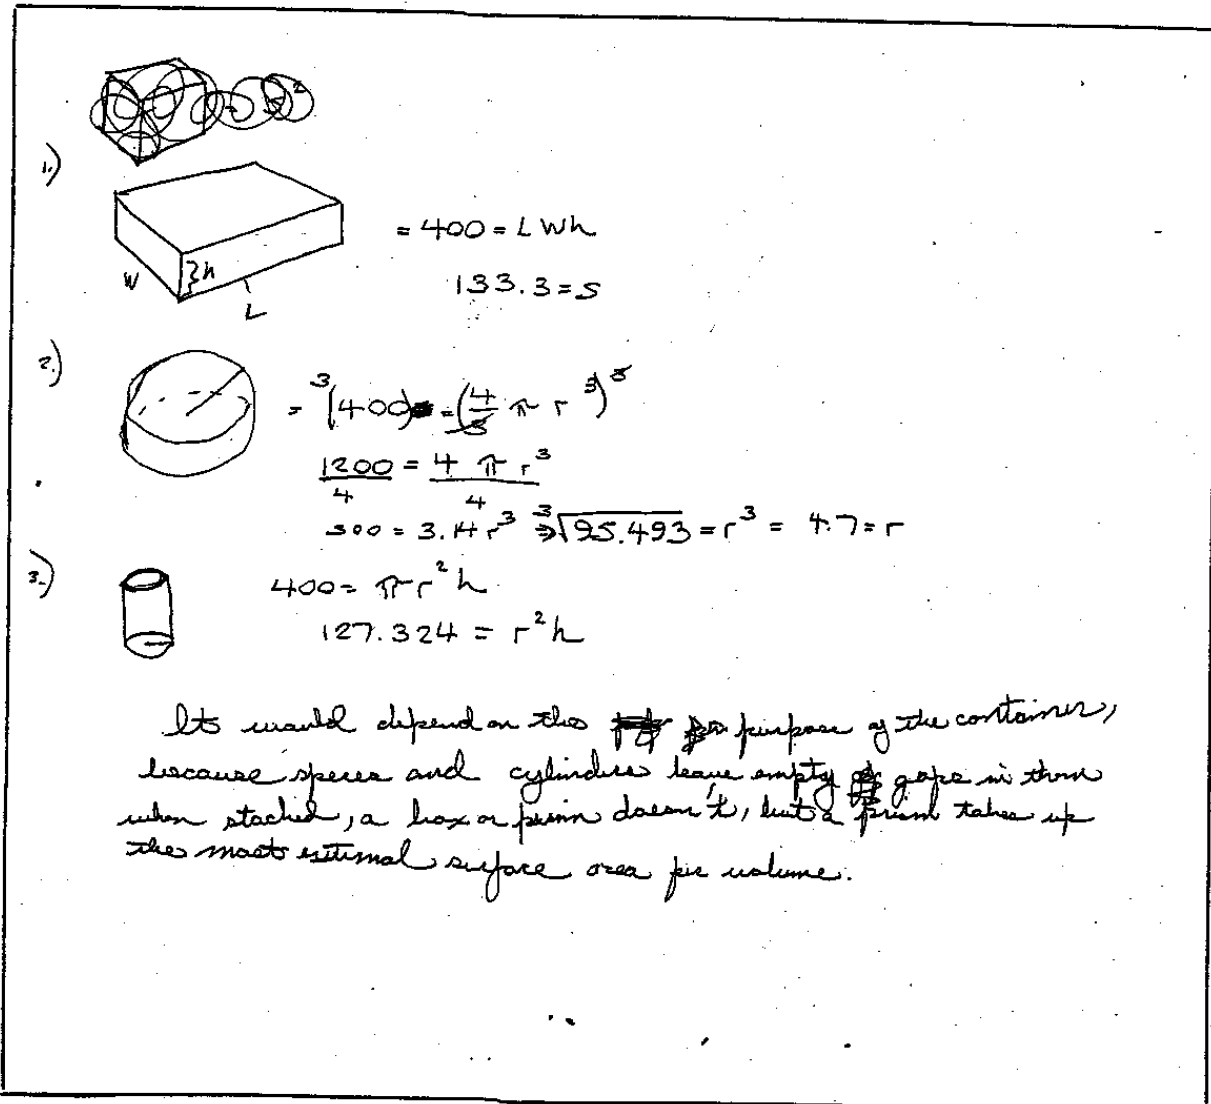 1.)
= 400 = L W h
W
h
L
133.3 = s
2.)
= ³(400) = (4/3 π r ³)³
1200/4 = 4 π r³/4
300 = 3.14 r³ ⇒ ³√95.493 = r³ = 4.7 = r
3.)
400 = π r² h
127.324 = r² h
Its would depend on the purpose of the container,
because speres and cylinders leave empty gaps in them
when stacked, a box or prism doesn't, but a prism takes up
the most surface area per volume.